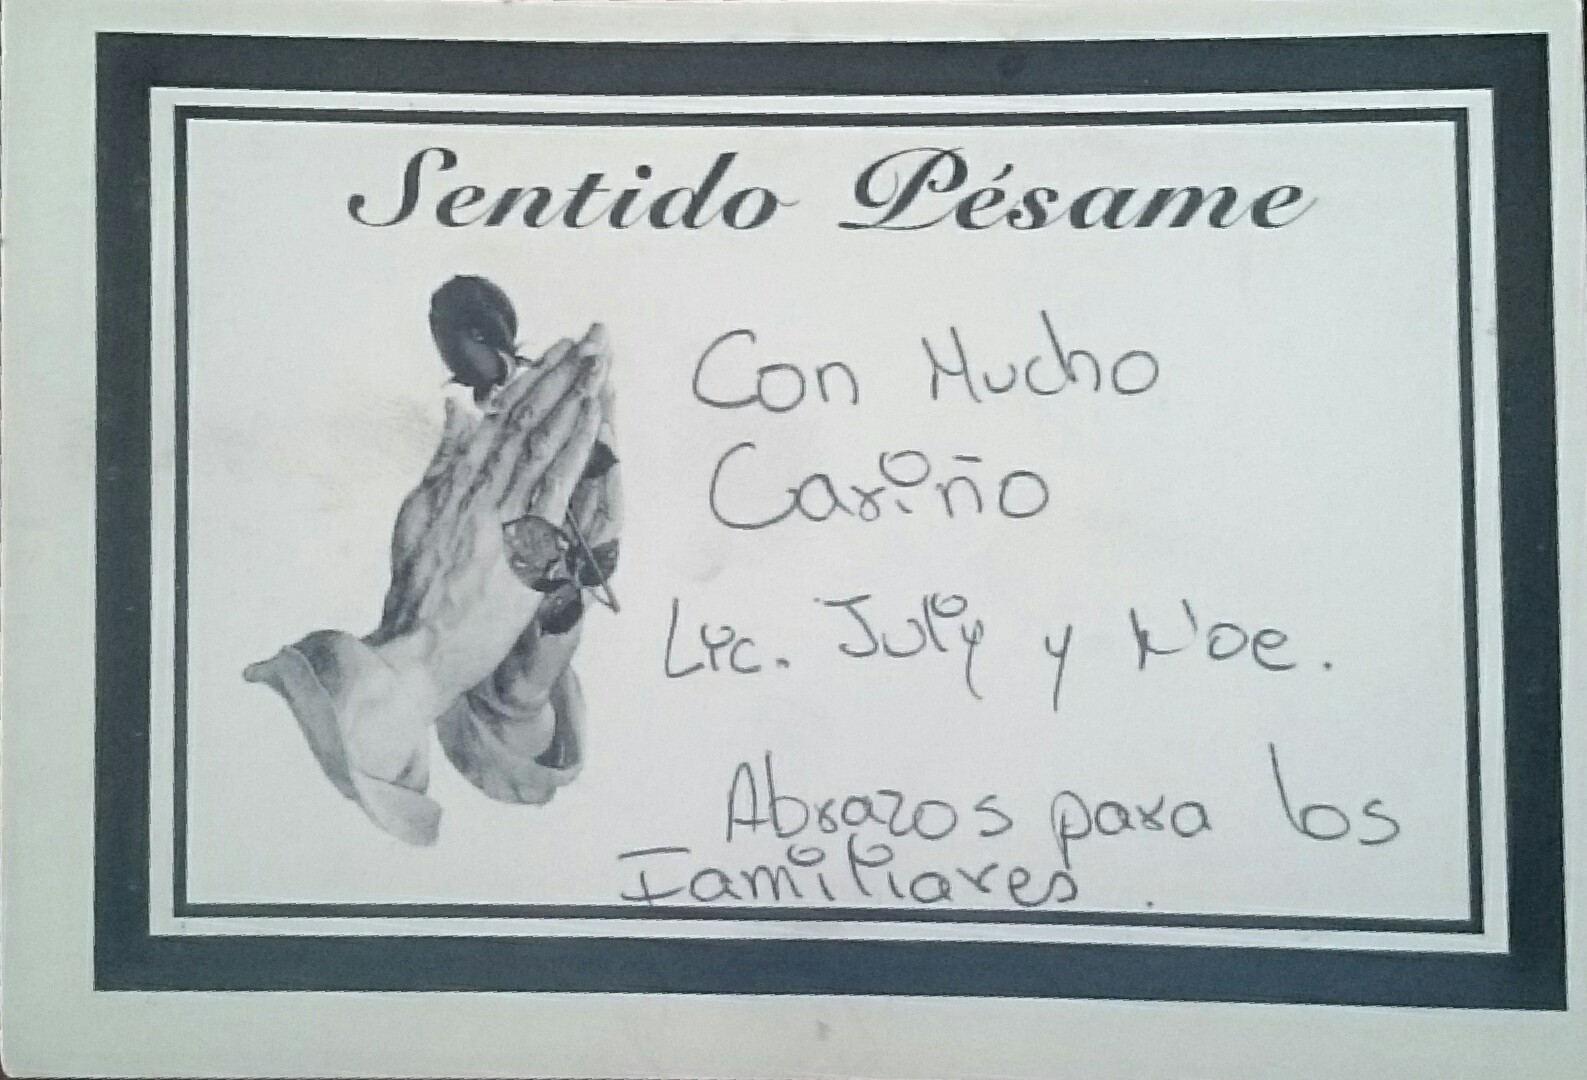 Sentido Pésame
Con Mucho
Cariño
Lic. July y Noe.
Abrazos para los
Familiares.